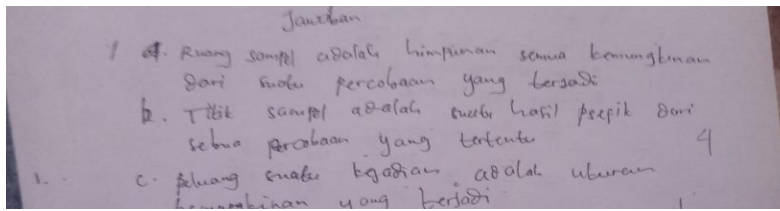 Jawaban
1 a. Ruang sampel adalah himpunan semua kemungkinan
dari suatu percobaan yang terjadi
b. Titik sampel adalah suatu hasil psepik dari
sebua percobaan yang tertentu
4
1. c. peluang suatu kejadian adalah ukuran
kemungkinan yang terjadi